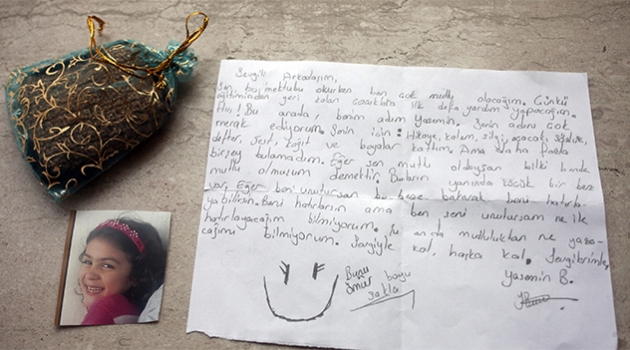 Sevgili Arkadaşım,
Sen bu mektubu okurken ben çok mutlu olacağım. Çünkü
eğitiminden geri kalan çocuklara ilk defa yardım yapacağım.
Bu arada, benim adım Yasemin. Senin adını çok
merak ediyorum. Senin için: Hikaye, kalem, silgi, açacak, sözlük,
defter, test, kağıt ve boyalar kattım. Ama daha fazla
birşey bulamadım. Eğer sen mutlu olduysan bilki bende
mutlu olmuşum demektir. Bunların yanında küçük bir bez
var. Eğer beni unutursan bu beze bakarak beni hatırla-
yabilirsin. Beni hatırlarsın ama ben seni unutursam ne ile
hatırlayacağım bilmiyorum. Şu anda mutluluktan ne yaza-
cağımı bilmiyorum. Sevgiyle kal, hoşça kal. Sevgilerimle,
Yasemin B.
Bunu
ömür boyu
sakla